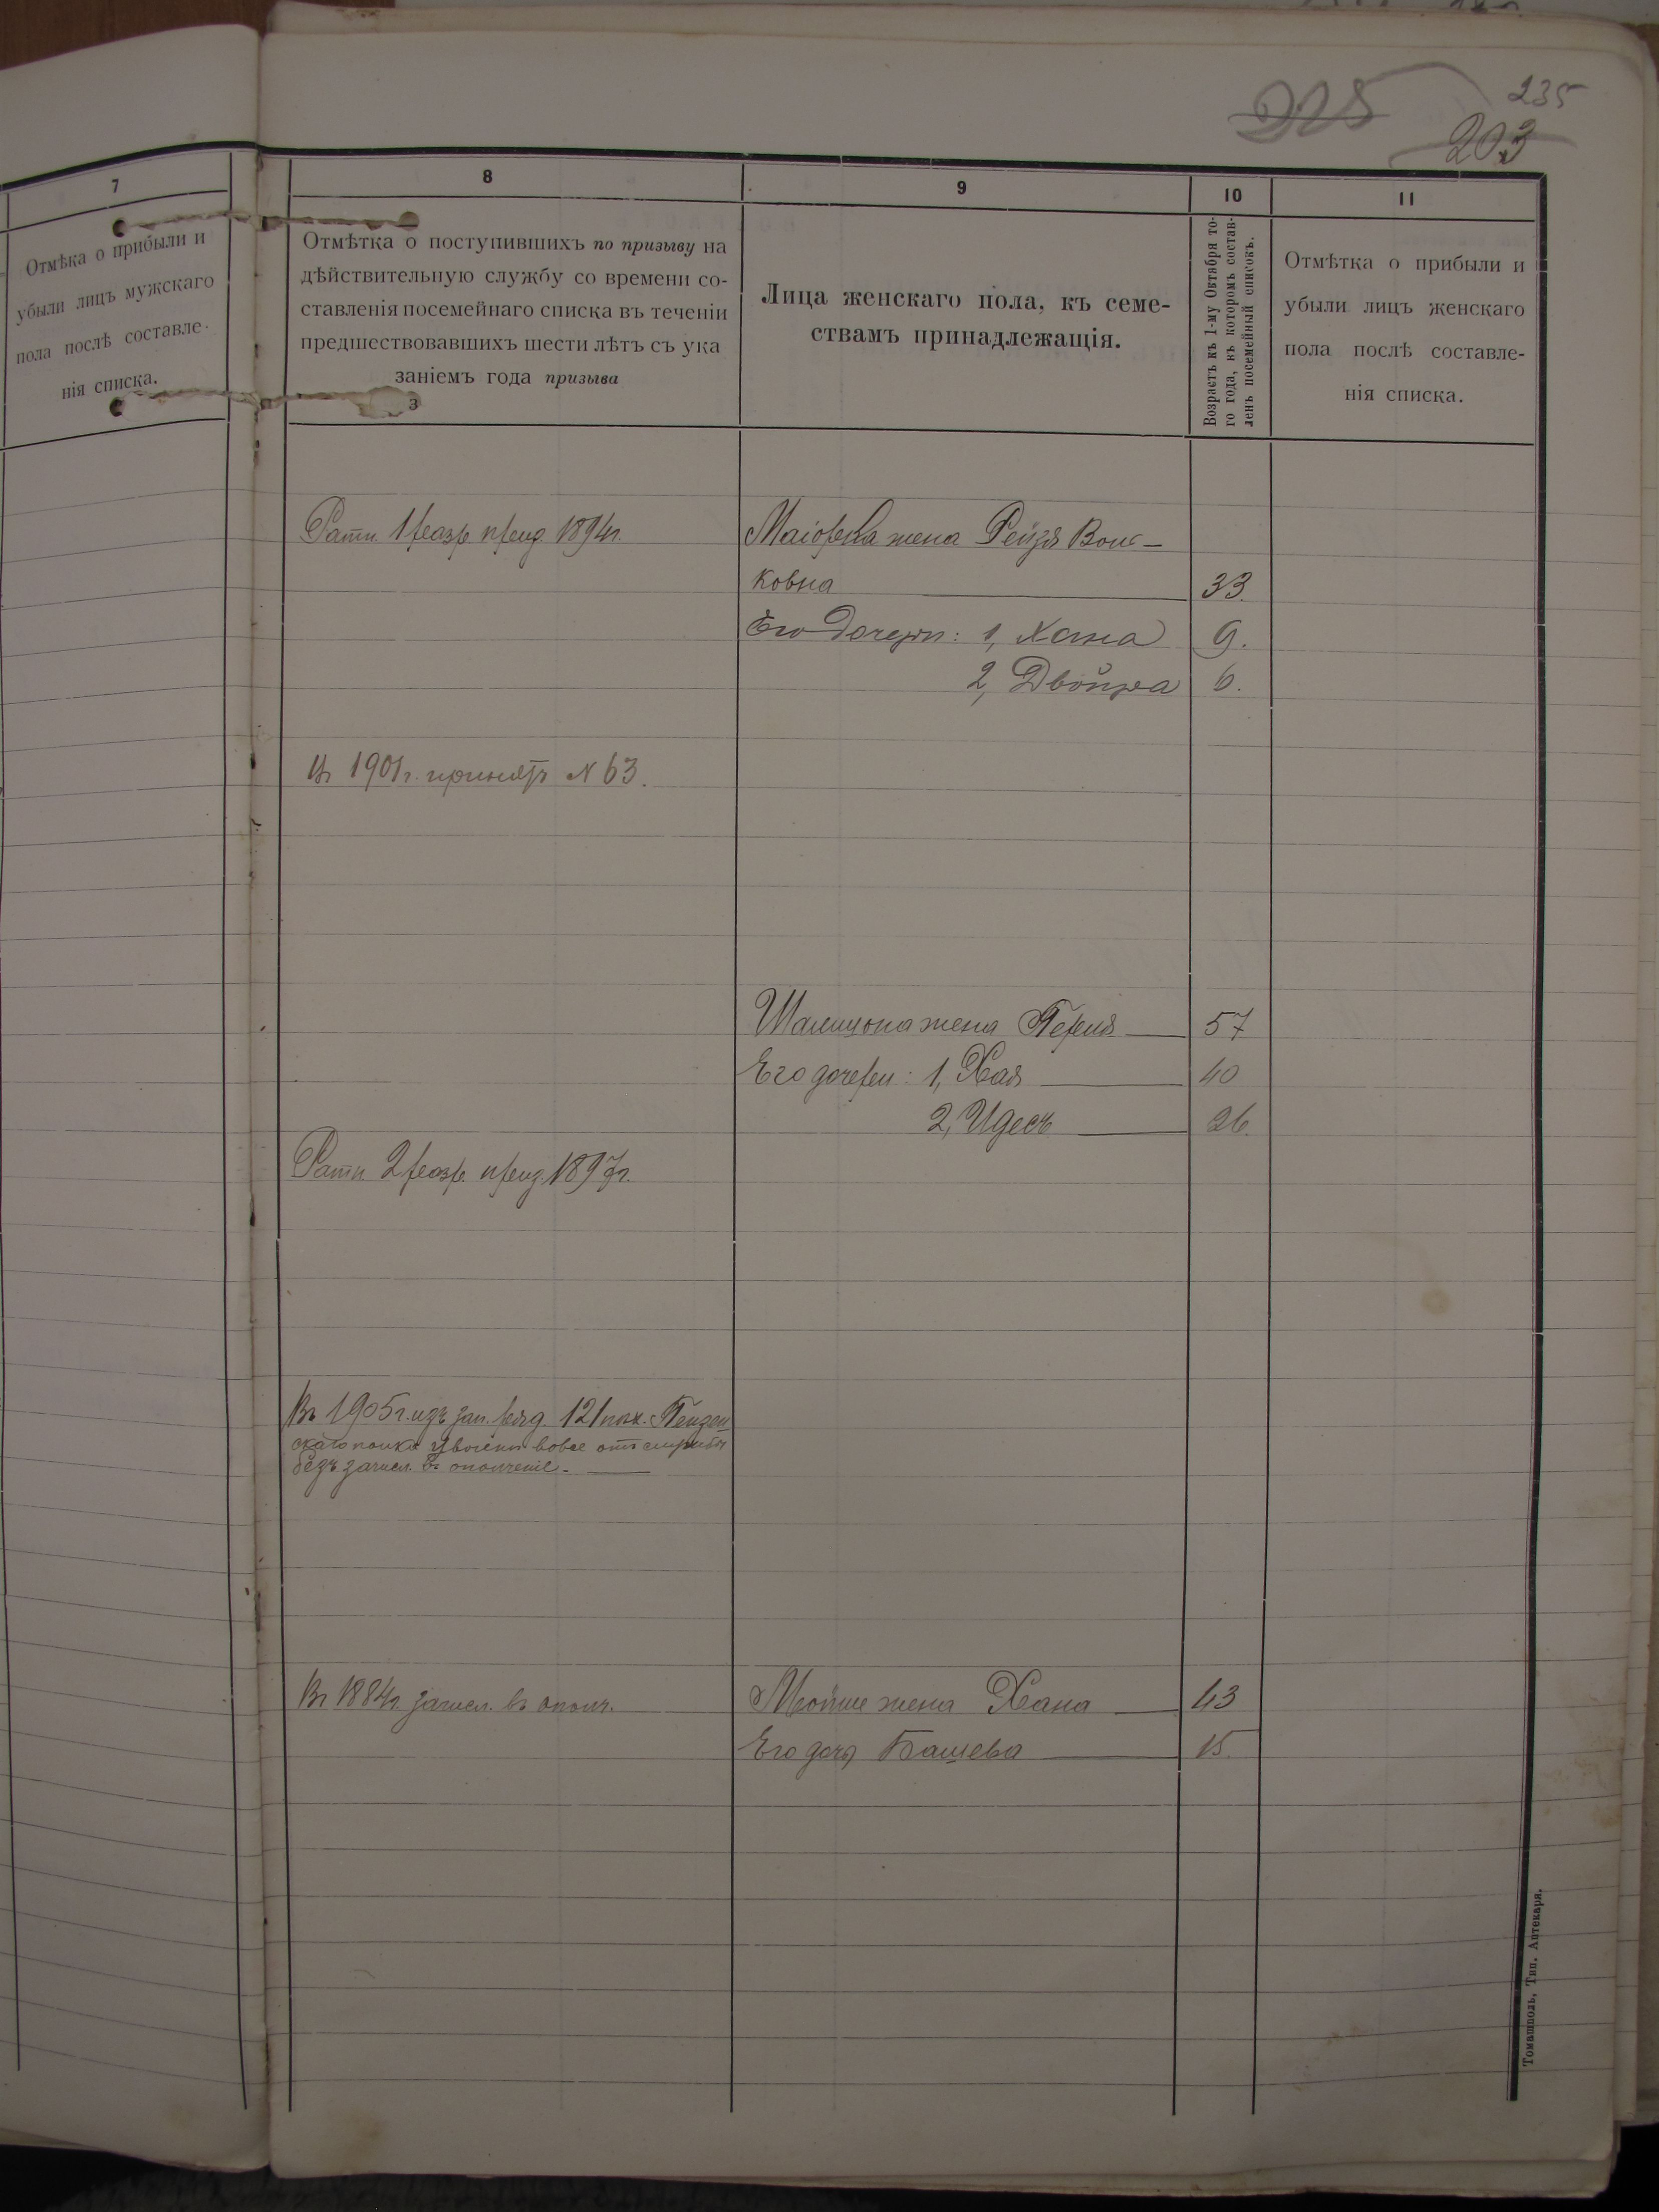 225
235
203
7
Отмѣка о прибыли и
убыли лицъ мужскаго
пола послѣ составле-
нія списка.
8
Отмѣтка о поступившихъ по призыву на
дѣйствительную службу со времени со-
ставленія посемейнаго списка въ теченіи
предшествовавшихъ шести лѣтъ съ ука
заніемъ года призыва
З
9
Лица женскаго пола, къ семе-
ствамъ принадлежащія.
10
Возрастъ къ 1-му Октября то-
го года, въ которомъ состав-
ленъ посемейный списокъ.
11
Отмѣтка о прибыли и
убыли лицъ женскаго
пола послѣ составле-
нія списка.
Ратн. 1 разр. призд. 1894г.
жена Рейзя Воль-
ковна 33.
Его Дочери: 1, Хана 9.
2, Двойра 6.
Въ 1901г. принятъ N 63.
Шлиомона жена Перля 57
Его дочери: 1, Хая 40
2, Идесъ 26.
Ратн. 2 разр. призд. 1897г.
Въ 1905г. изъ зап. ряд. 121 пѣх. Пензен
скаго полка уволенъ вовсе отъ службы
безъ зачисл. въ ополченіе.
Въ 1884г. зачисл. въ ополч.
Мойше жена Хана 43
Его дочь Башева 15.
Томашполь, Тип. Аптекаря.